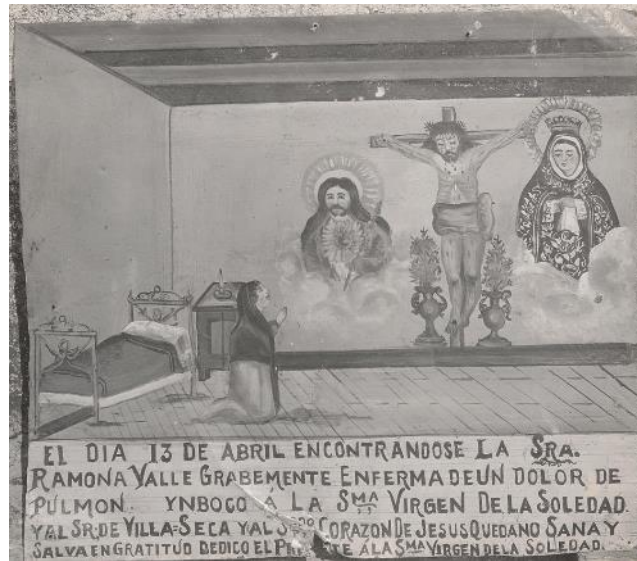 EL DIA 13 DE ABRIL ENCONTRANDOSE LA SRA.
RAMONA VALLE GRABEMENTE ENFERMA DE UN DOLOR DE
PULMON. YNBOCO Á LA SMA VIRGEN DE LA SOLEDAD.
Y AL SR. DE VILLA=SECA Y AL CORAZON DE JESUS QUEDANO SANA Y
SALVA EN GRATITUD DEDICO EL Á LA SMA VIRGEN DE LA SOLEDAD.